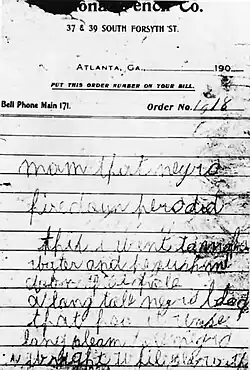 Co.
37 & 39 SOUTH FORSYTH ST.
ATLANTA, GA., 190
PUT THIS ORDER NUMBER ON YOUR BILL.
Bell Phone Main 171. Order No. 1018
mam that negro
hire down here did
this i went to make
water and he push me
down that hole
a long tall negro black
that hoo it wase
long sleam tall negro
i wright while play with